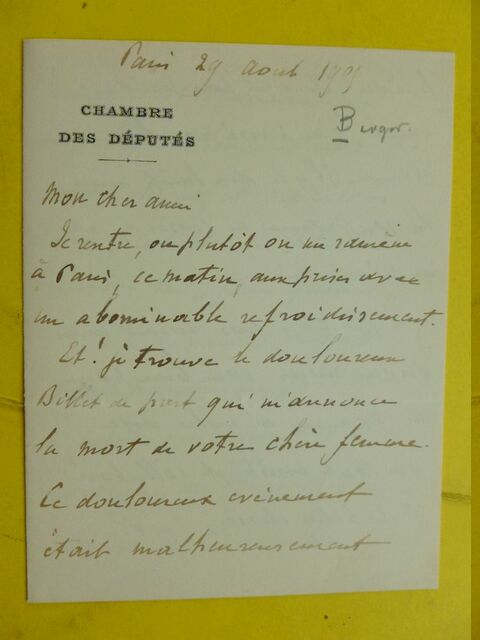 Paris 29 août 1905
CHAMBRE
DES DÉPUTÉS
Berger.
Mon cher ami
Je rentre, ou plutôt on me ramène
à Paris, ce matin, aux prises avec
un abominable refroidissement.
Et! je trouve le douloureux
Billet de part qui m'annonce
la mort de votre chère femme.
Ce douloureux evènement
était malheureusement